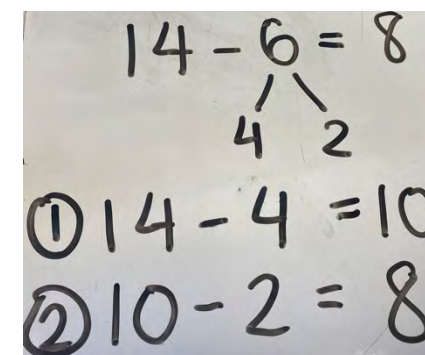 14 - 6 = 8
4 2
① 14 - 4 = 10
② 10 - 2 = 8